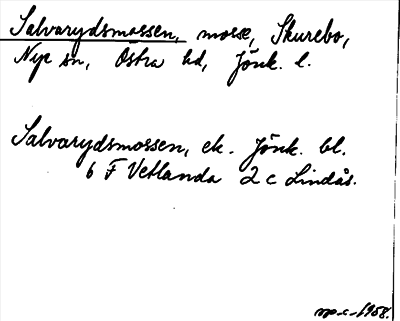 Salvarydsmossen, mosse, Skurebo,
Nye sn, Östra hd, Jönk. l.
Salvarydsmossen, ek. Jönk. bl.
6 F Vetlanda 2 c Lindås.
1958.